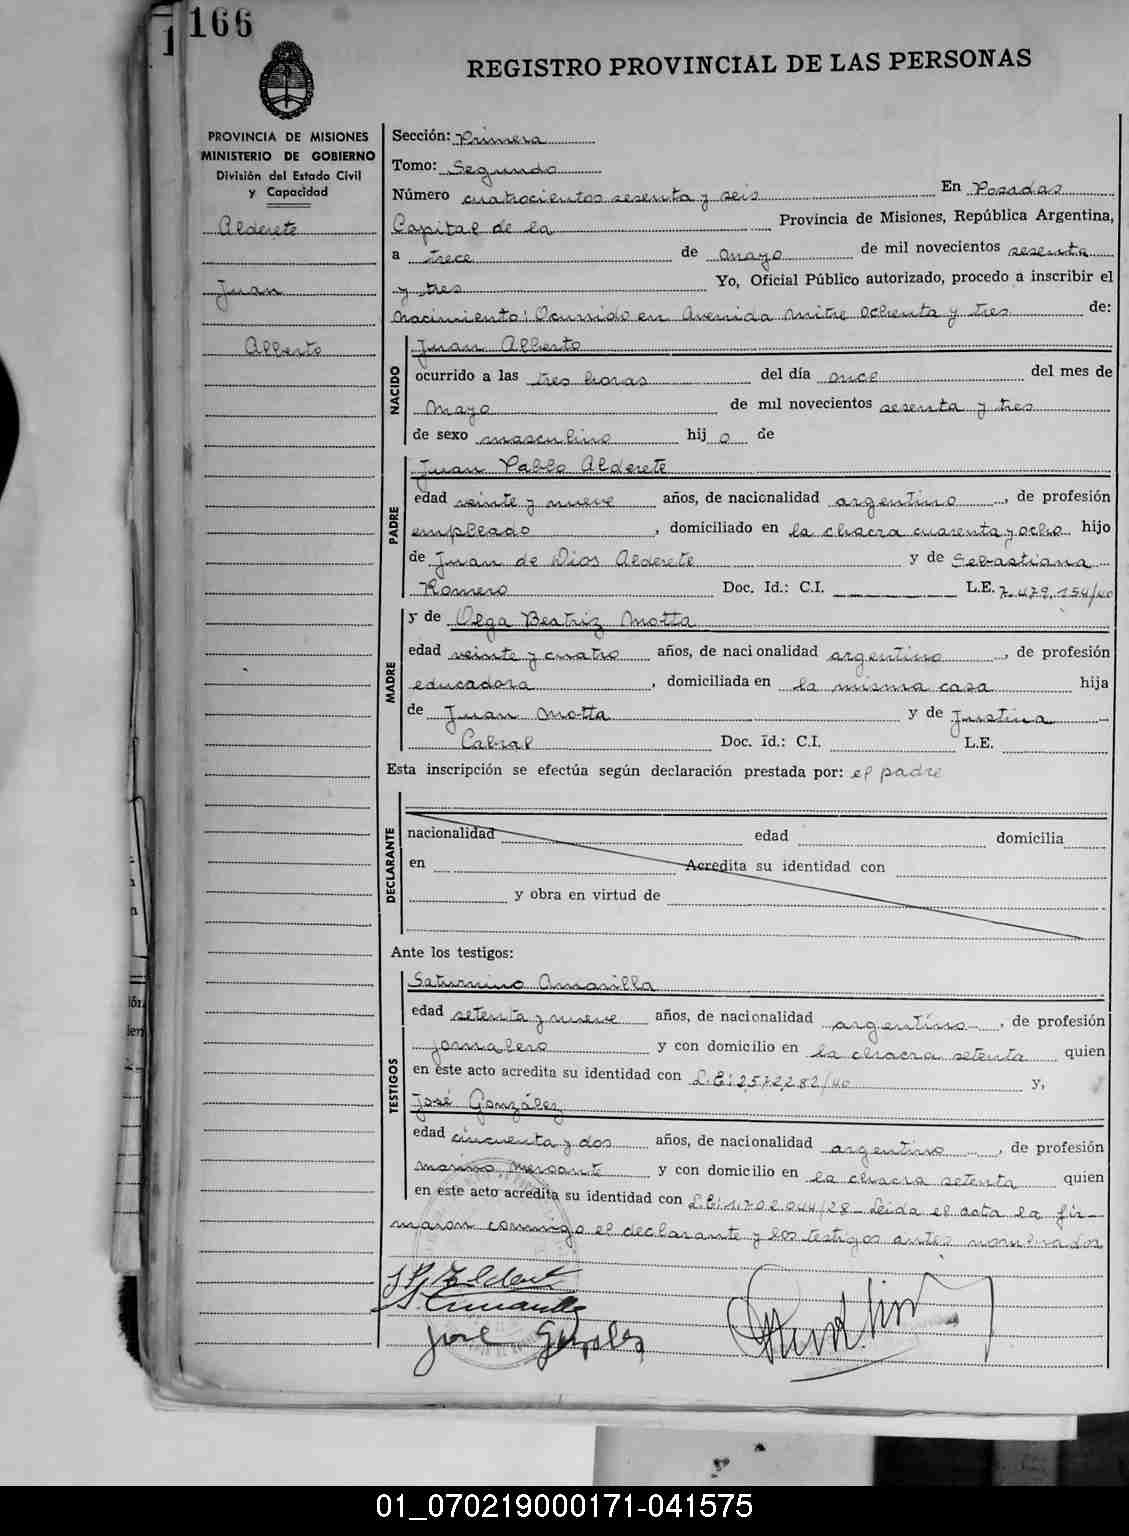 166
REGISTRO PROVINCIAL DE LAS PERSONAS
PROVINCIA DE MISIONES
MINISTERIO DE GOBIERNO
División del Estado Civil
y Capacidad
Alderete
Juan
Alberto
Sección: Primera
Tomo: Segundo
Número cuatrocientos sesenta y seis En Posadas
Capital de la Provincia de Misiones, República Argentina,
a trece de mayo de mil novecientos sesenta
y tres Yo, Oficial Público autorizado, procedo a inscribir el
nacimiento: Ocurrido en Avenida Mitre Ochenta y tres de:
NACIDO
Juan Alberto
ocurrido a las tres horas del día once del mes de
Mayo de mil novecientos sesenta y tres
de sexo masculino hij o de
PADRE
Juan Pablo Alderete
edad veinte y nueve años, de nacionalidad argentino, de profesión
empleado, domiciliado en la chacra cuarenta y ocho hijo
de Juan de Dios Alderete y de Sebastiana
Romero Doc. Id.: C.I. L.E. 7.479.154/40
MADRE
y de Olga Beatriz Motta
edad veinte y cuatro años, de nacionalidad argentino, de profesión
educadora, domiciliada en la misma casa hija
de Juan Motta y de Justina
Cabral Doc. Id.: C.I. L.E.
Esta inscripción se efectúa según declaración prestada por: el padre
DECLARANTE
nacionalidad edad domicilia
en Acredita su identidad con
y obra en virtud de
Ante los testigos:
TESTIGOS
Saturnino Amarilla
edad setenta y nueve años, de nacionalidad argentino, de profesión
jornalero y con domicilio en la chacra setenta quien
en este acto acredita su identidad con L.E: 2.572.282/40 y,
José González
edad cincuenta y dos años, de nacionalidad argentino, de profesión
marino mercante y con domicilio en la chacra setenta quien
en este acto acredita su identidad con L.E: 1.702.044/28 - Leida el acta la fir-
maron conmigo el declarante y los testigos antes nombrados
José Gonzalez
01_070219000171-041575